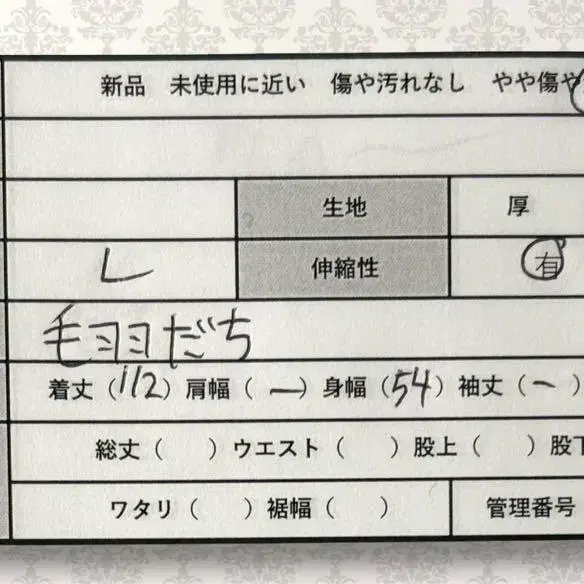 新品 未使用に近い 傷や汚れなし やや傷や
生地 厚
L 伸縮性 有
毛羽だち
着丈(112) 肩幅(ー) 身幅(54) 袖丈(ー)
総丈( ) ウエスト( ) 股上( ) 股下
ワタリ( ) 裾幅( ) 管理番号